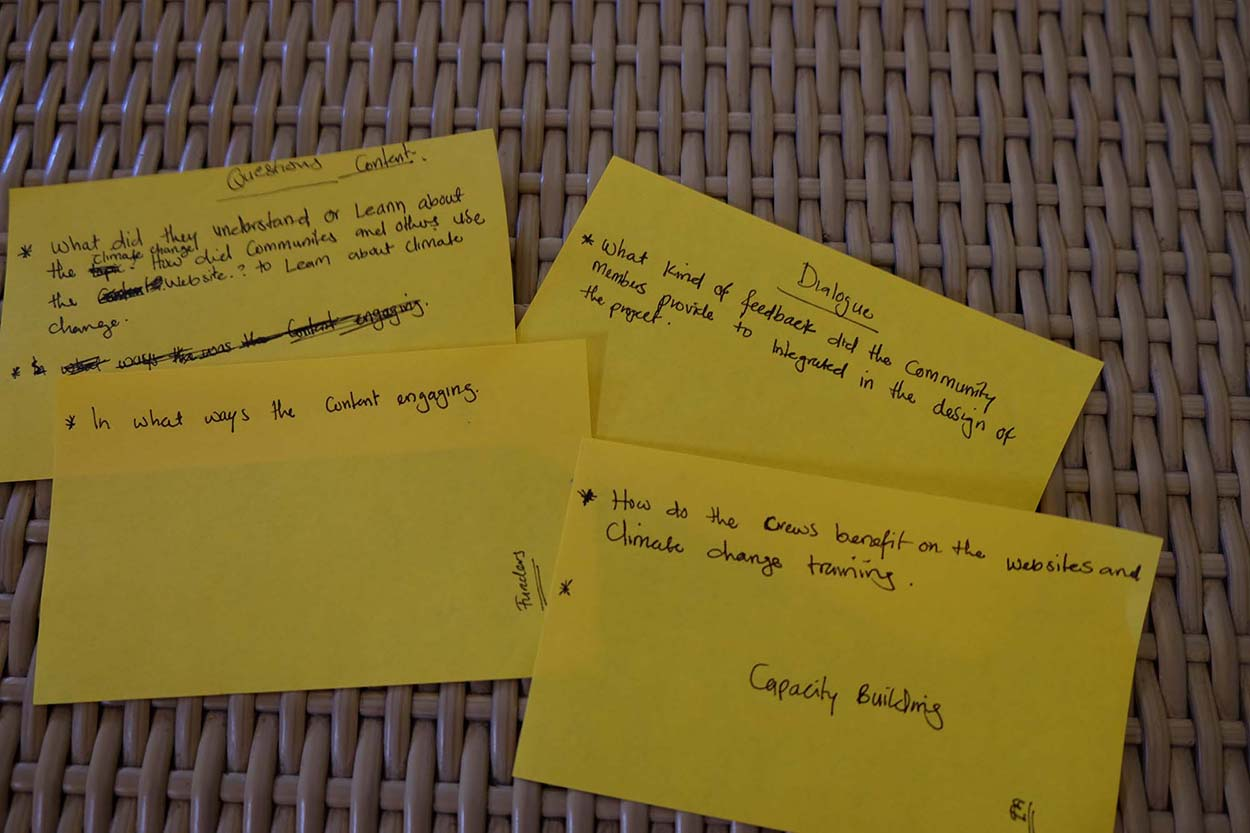 Questions Content.
* What did they understand or Learn about
the climate change topic. How did Communites and others use
the Content Website.? to Learn about climate
change.
* ways the was the Content engaging.
* In what ways the Content engaging.
Funders
Dialogue
* What kind of feedback did the Community
members provide to integrated in the design of
the project.
* How do the crews benefit on the websites and
Climate change training.
*
Capacity Building